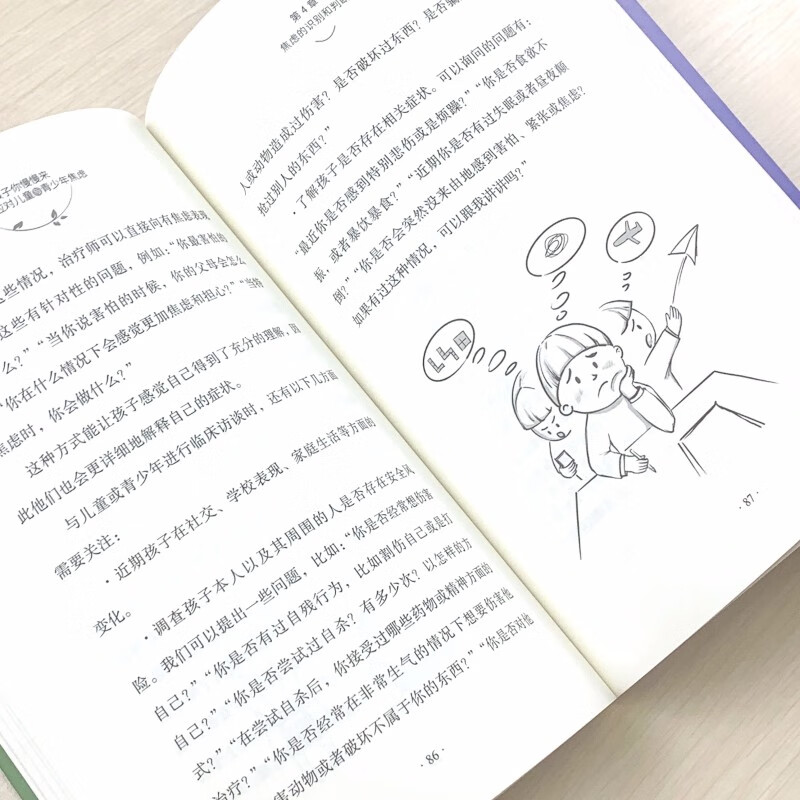 子你慢慢来
对儿童的青少年焦虑
些情况，治疗师可以直接向有焦虑表现
这些有针对性的问题，例如：“你最害怕的
么？”“当你说害怕的时候，你的父母会怎么
“你在什么情况下会感觉更加焦虑和担心？”“当你
焦虑时，你会做什么？”
这种方式能让孩子感觉自己得到了充分的理解，因
此他们也会更详细地解释自己的症状。
与儿童或青少年进行临床访谈时，还有以下几方面
需要关注：
·近期孩子在社交、学校表现、家庭生活等方面的
变化。
·调查孩子本人以及其周围的人是否存在安全风
险。我们可以提出一些问题，比如：“你是否经常想伤害
自己？”“你是否有过自残行为，比如割伤自己或是打
自己？”“你是否尝试过自杀？有多少次？以怎样的方
式？”“在尝试自杀后，你接受过哪些药物或精神方面的
治疗？”“你是否经常在非常生气的情况下想要伤害他
害动物或者破坏不属于你的东西？”“你是否对他
·86·
第4章
焦虑的识别和判断
人或动物造成过伤害？是否破坏过东西？是否骗
抢过别人的东西？”
·了解孩子是否存在相关症状。可以询问的问题有：
“最近你是否感到特别悲伤或是烦躁？”“你是否食欲不
振，或者暴饮暴食？”“近期你是否有过失眠或者昼夜颠
倒？”“你是否会突然没来由地感到害怕、紧张或焦虑？
如果有过这种情况，可以跟我讲讲吗？”
·87·